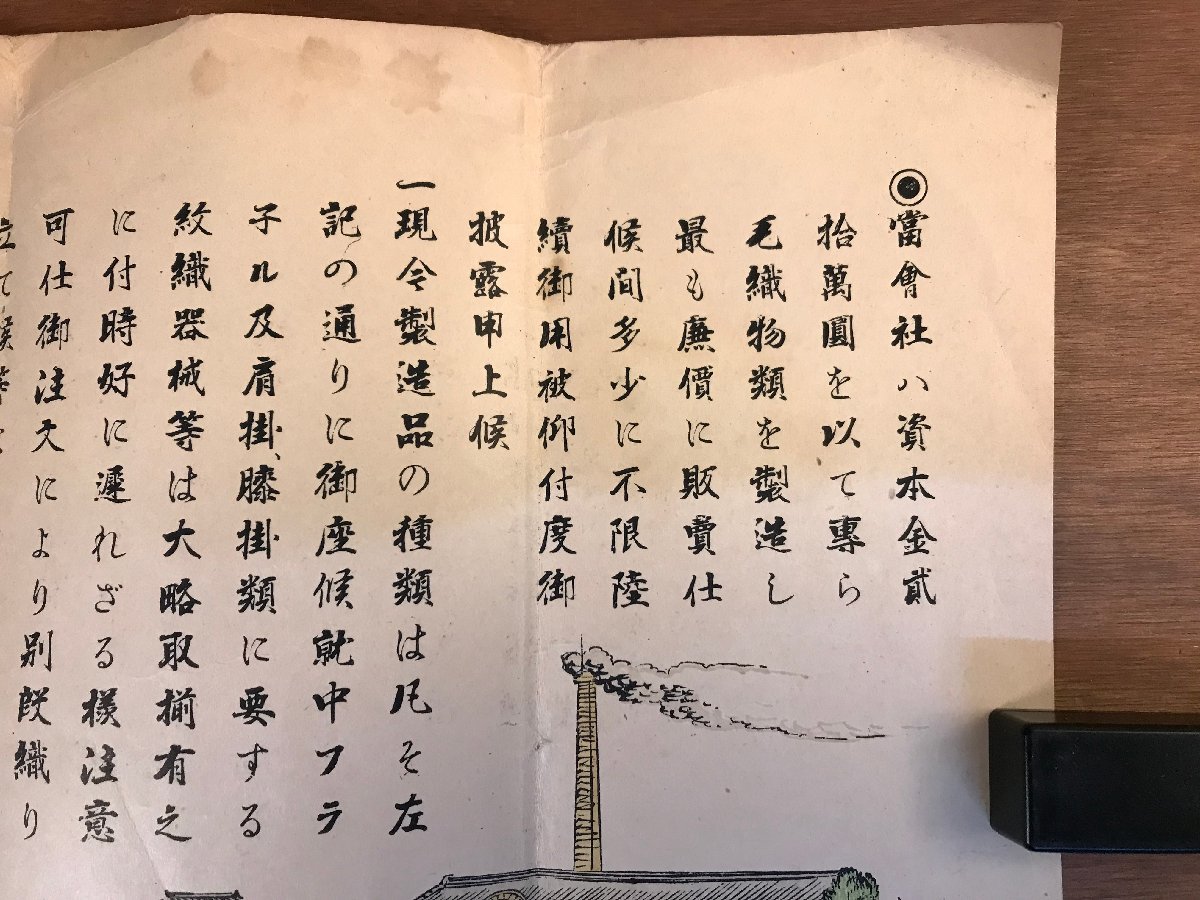 ◉當會社ハ資本金貳
拾萬圓を以て專ら
毛織物類を製造し
最も廉價に販賣仕
候間多少に不限陸
續御用被仰付度御
披露申上候
一現今製造品の種類は凡そ左
記の通りに御座候就中フラ
子ル及肩掛、膝掛類に要する
紋織器械等は大略取揃有之
に付時好に遲れざる樣注意
可仕御注文により別段織り
立て候等